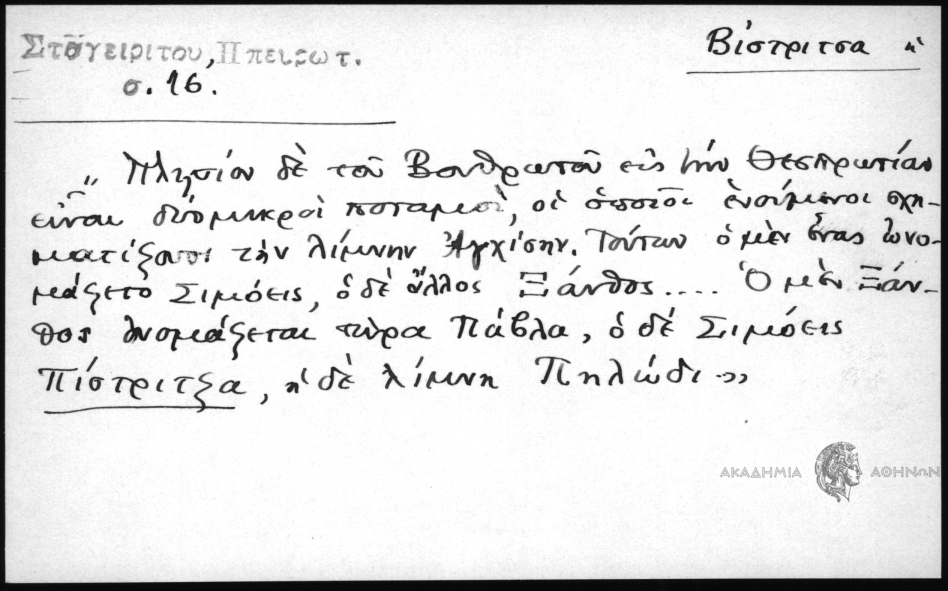 Σταγειρίτου, Ηπειρωτ.
σ. 16.
Βίστριτσα ἡ
„ Πλησίον δὲ τοῦ Βουθρωτοῦ εἰς τὴν Θεσπρωτίαν
εἶναι δύο μικροὶ ποταμοὶ, οἱ ὁποῖοι ἑνούμενοι σχη-
ματίζουσι τὴν λίμνην Ἀγχίσην. Τούτων ὁ μὲν ἕνας ὠνο-
μάζετο Σιμόεις, ὁ δὲ ἄλλος Ξάνθος.... Ὁ μὲν Ξάν-
θος ὀνομάζεται τώρα Πάβλα, ὁ δὲ Σιμόεις
Πίστριτζα, ἡ δὲ λίμνη Πηλώδι»
ΑΚΑΔΗΜΙΑ ΑΘΗΝΩΝ